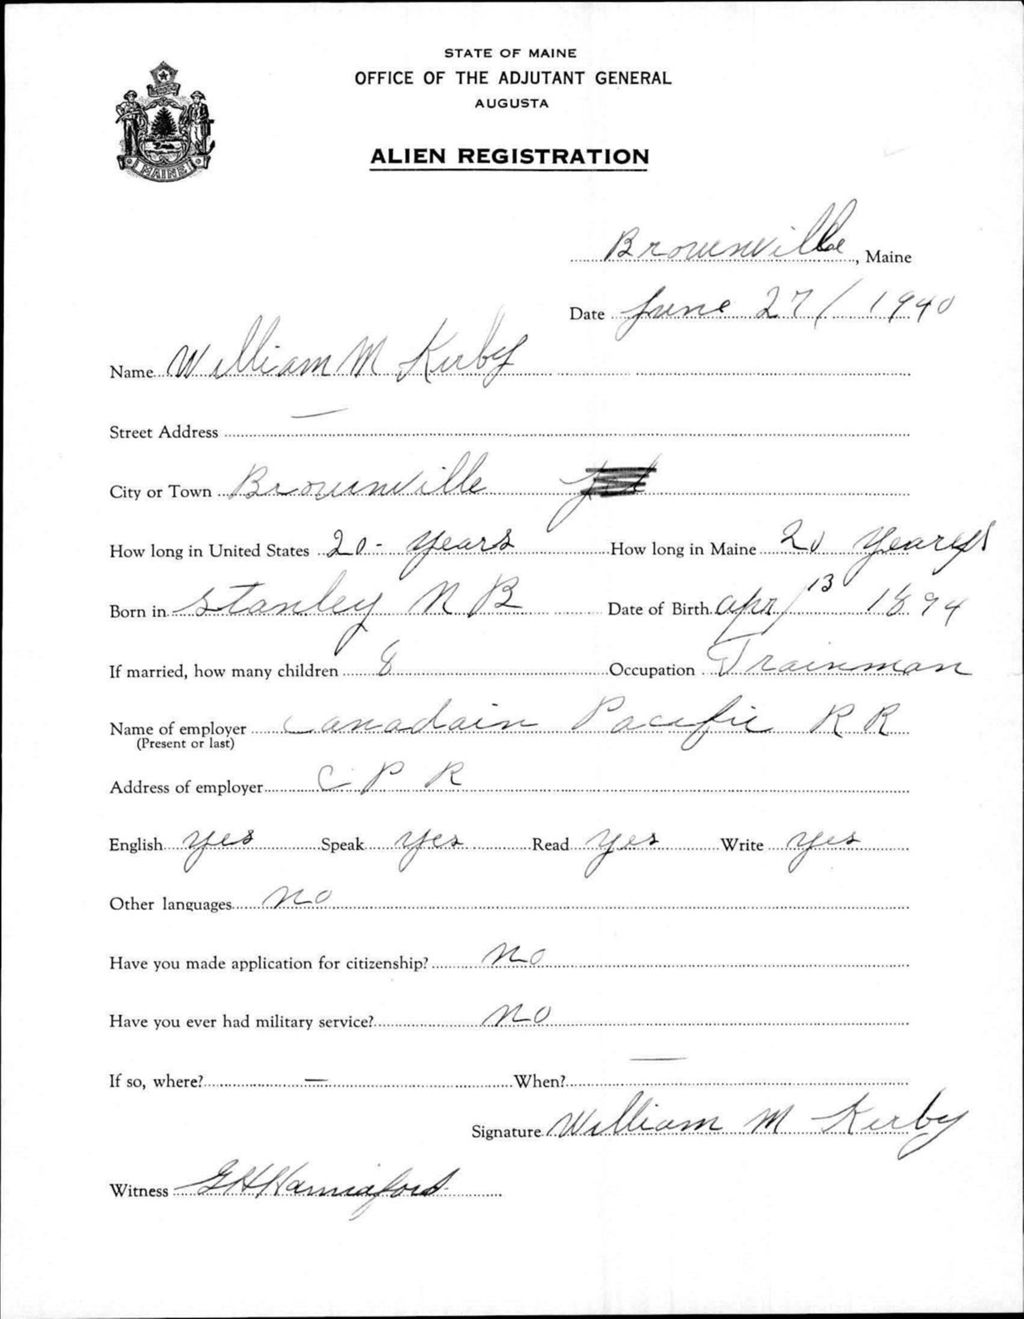 STATE OF MAINE
OFFICE OF THE ADJUTANT GENERAL
AUGUSTA
ALIEN REGISTRATION
MAINE
Brownville, Maine
Date June 27/1940
Name William M Kirby
Street Address —
City or Town Brownville
How long in United States 20 - years How long in Maine 20 years
Born in Stanley N B Date of Birth Apr 13 1894
If married, how many children 8 Occupation Trainman
Name of employer Canadain Pacific R R
(Present or last)
Address of employer C P R
English yes Speak yes Read yes Write yes
Other languages no
Have you made application for citizenship? no
Have you ever had military service? no
If so, where? — When? —
Signature William M Kirby
Witness G H Hannaford